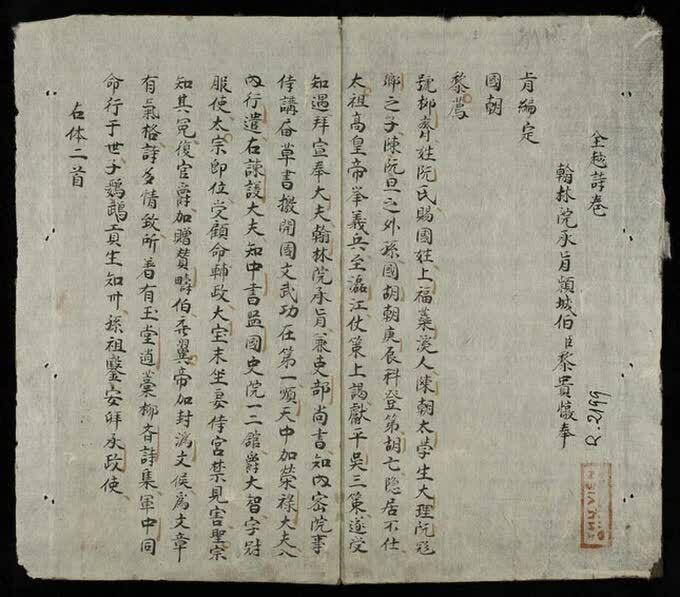 全越詩卷
翰林院承旨穎城伯臣黎貴惇奉
旨編定
國朝
黎廌
號抑斎姓阮氏賜國姓上福蘂溪人陳朝太學生大理阮飛
卿之子陳阮旦之外孫國胡朝庚辰科登第胡亡隐居不仕
太祖高皇帝峯義兵至瀘江仗策上謁獻平吳三策遂受
知遇拜宣奉大夫翰林院承旨兼吏部尚書知內密院事
侍講奋草書檄開國文武功在第一順天中加榮祿大夫入
內行遣右諫議大夫知中書監國史院一二舘爵大智字冠
服使太宗即位受顧命輔政大宝末坐妻侍宮禁見害聖宗
知其冤復官爵加贈賛疇伯至翼帝加封濟文侯為文章
有氣格詩多情致所着有玉堂遺藁抑斎詩集軍中同
命行于世子鸚鵡員生知卅孫祖鑒安拜承政使
古体二首
R.2199